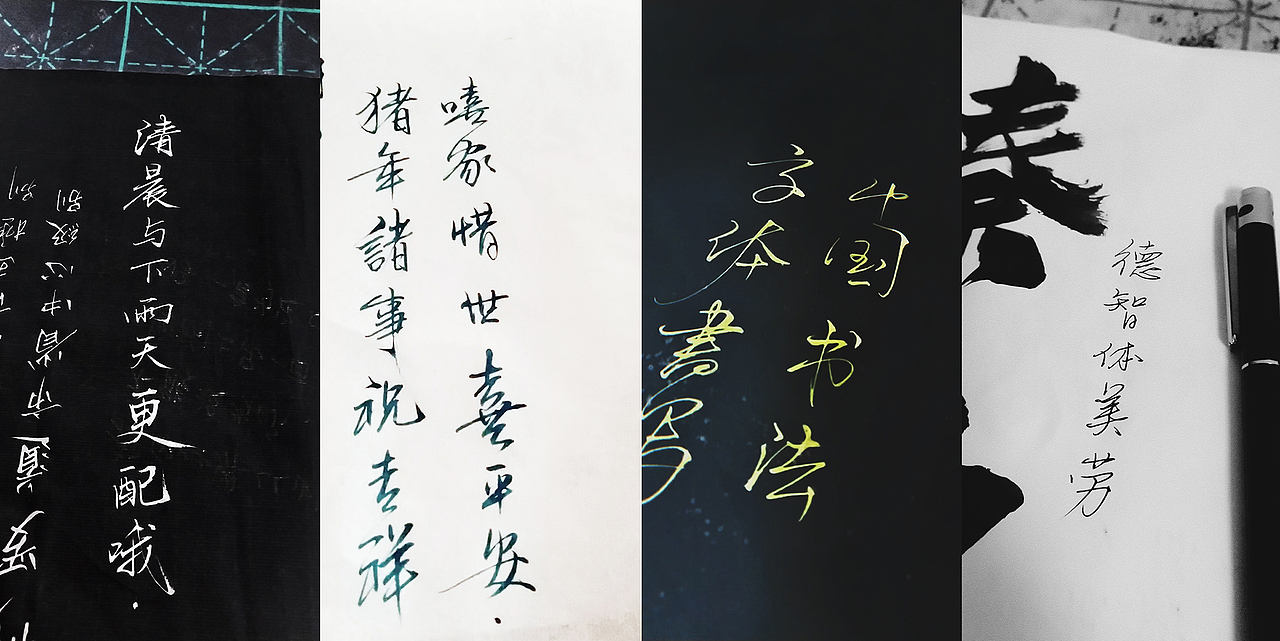 清晨与下雨天更配哦.
嘻家惜世喜平安.
猪年諸事祝吉祥
中国书法
文体書写
德智体美劳